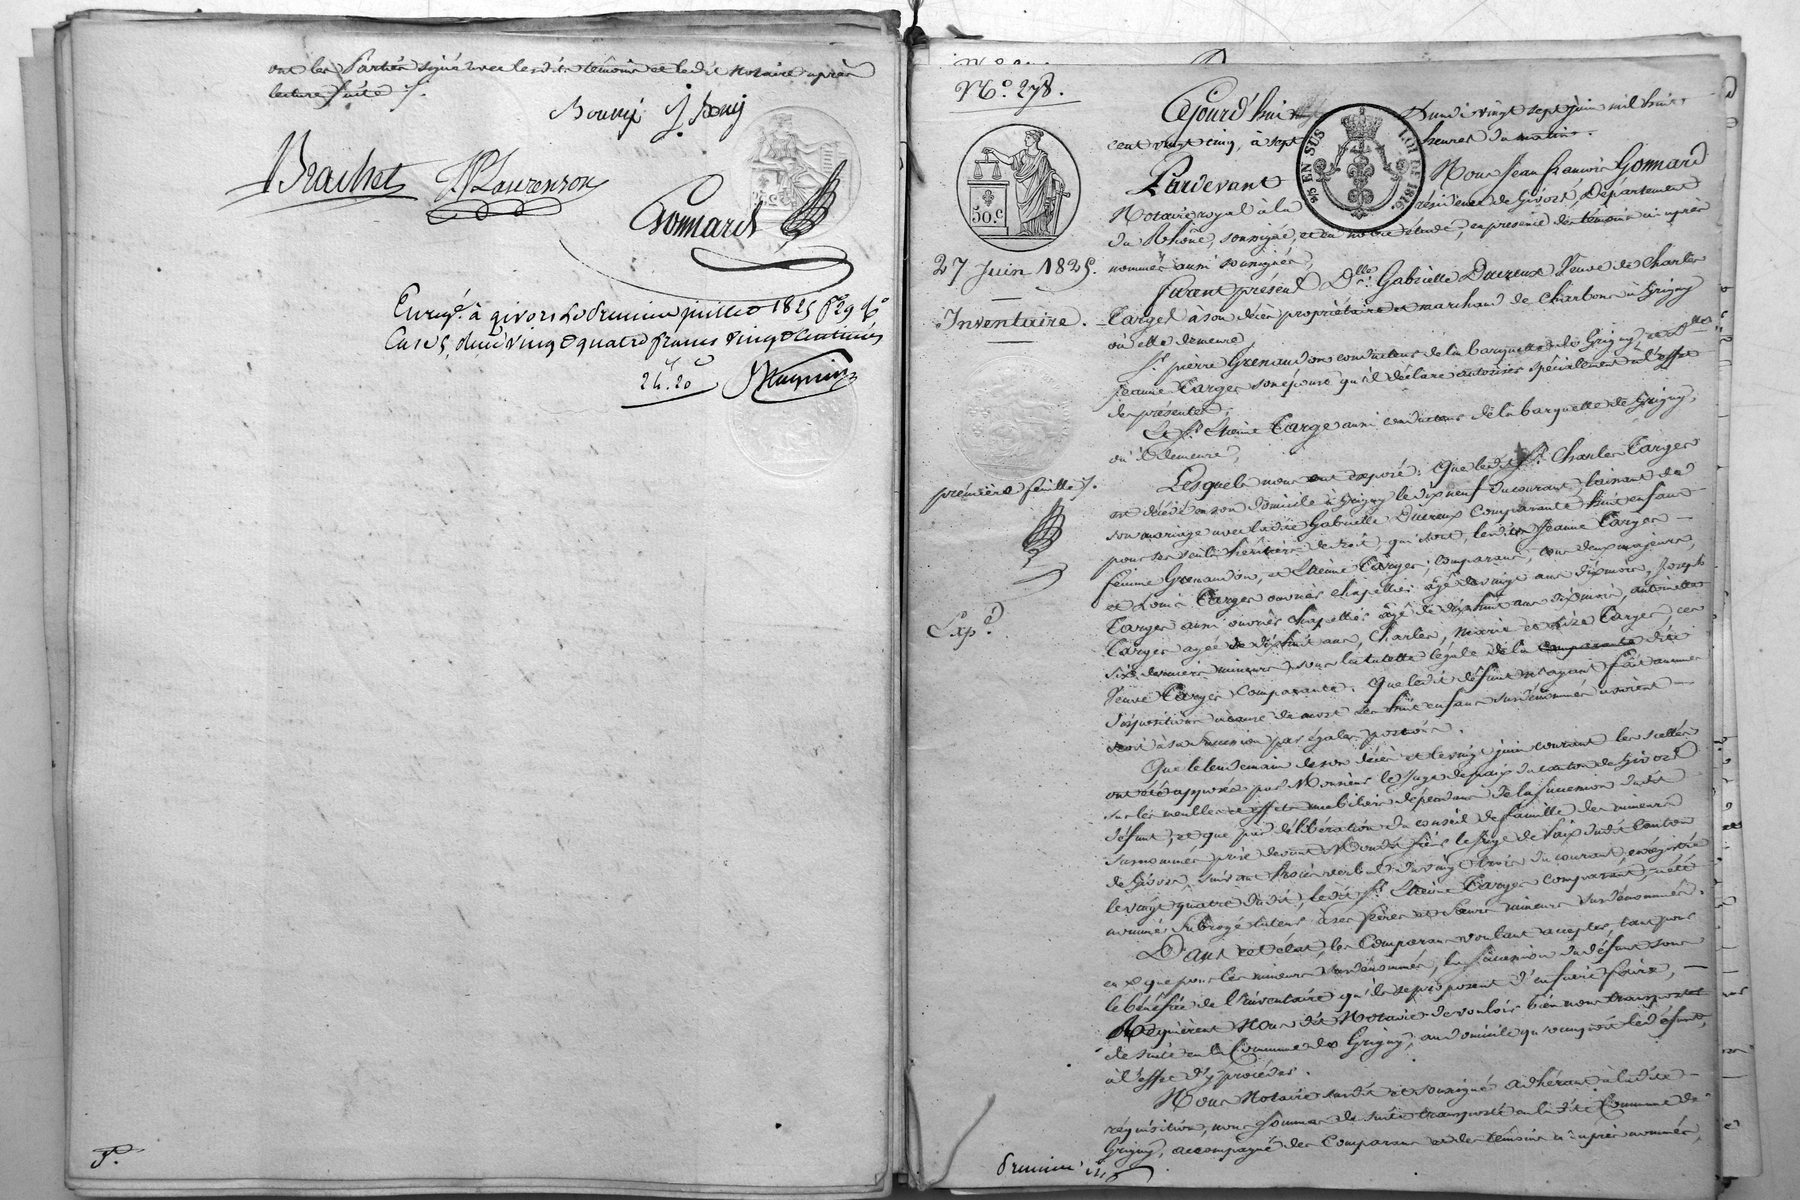 ont les Parties signé avec lesdits témoins et ledit Notaire après
lecture faite ./.
Bouvey J. Bouy
Brachet JPLaurenson
Gonnard
Enregé. à givors Le premier juillet 1825 fo 29 Ro
Cases, reçu vingt quatre francs vingt Centimes
24 f. 20 c
No. 278.
27 Juin 1825.
Inventaire.
première feuille ./.
Expé.
50. c
25 EN SUS LOI DE 1816.
Cejourd'hui Lundi vingt sept Juin mil huit
cent vingt cinq, à sept heures du matin.
Pardevant Nous Jean françois Gonnard
Notaire royal à la résidence de Givors, Département
du Rhône, soussigné, et en notre étude, en présence des témoins ci après
nommés aussi soussignés,
furent présent Dlle. Gabrielle Ducreux Veuve de Charles
Targer à son décès propriétaire et marchand de Charbons à Grigny
où elle demeure,
Sr. pierre Grenaudon conducteur de la barquette de Grigny, et Dlle
Jeanne Targer son épouse qu'il déclare autoriser spécialement à l'effet
des présentes,
Le Sr. Etienne Targe aussi conducteur de la barquette de Grigny,
où il demeure,
Lesquels nous ont exposé: Que ledit Sr. Charles Targer
est décédé en son domicile à Grigny le dix neuf du courant, laissant de
son mariage avec ladite Gabrielle Ducreux Comparante huit enfans
pour ses seuls héritiers de droit, qui sont, lesdits Jeanne Targer
femme Grenaudon, et Etienne Targer, Comparans, tous deux majeurs,
et Louis Targer ouvrier chapellier âgé de vingt ans dix mois, Joseph
Targer aussi ouvrier chapellier âgé de dix huit ans dix mois, antoinette
Targer agée de dix huit ans, Charles, Marie et Targer, ces
six derniers mineurs sous la tutelle légale de la comparante dite
Veuve Targer Comparante. Que ledit défunt n'ayant fait aucunes
dispositions à cause de mort les huit enfans susdénommés
droit à sa succession par égales portions.
Que le lendemain de son décès et le vingt juin courant les scellés
ont été apposés par Monsieur le Juge de paix du canton de Givors
sur les meubles et effets mobiliers dépendans de la succession dudit
défunt, et que par délibération du conseil de famille des mineurs
surnommés prise devant Mondit Sieur le Juge de Paix dudit Canton
de Givors, suivant Procès verbal du vingt trois du courant, enregistré
le vingt quatre dudit, ledit Sr. Etienne Targer comparant, a été
nommé Subrogé tuteur à ses frères et soeurs mineurs susdénommés.
Dans cet état, les Comparans voulant accepter, tant pour
eux que pour les mineurs susdénommés, la succession du défunt sous
le bénéfice de l'inventaire qu'ils se proposent d'en faire faire,
Requièrent Nous dit Notaire de vouloir bien nous transporter
de suite en la Commune de Grigny, au domicile qu'occupoit le défunt,
à l'effet d'y procéder.
Nous Notaire susdit et soussigné adhérant à ladite
réquisition, nous sommes de suite transporté en ladite Commune de
Grigny, accompagné des Comparans et des témoins ci après nommés,